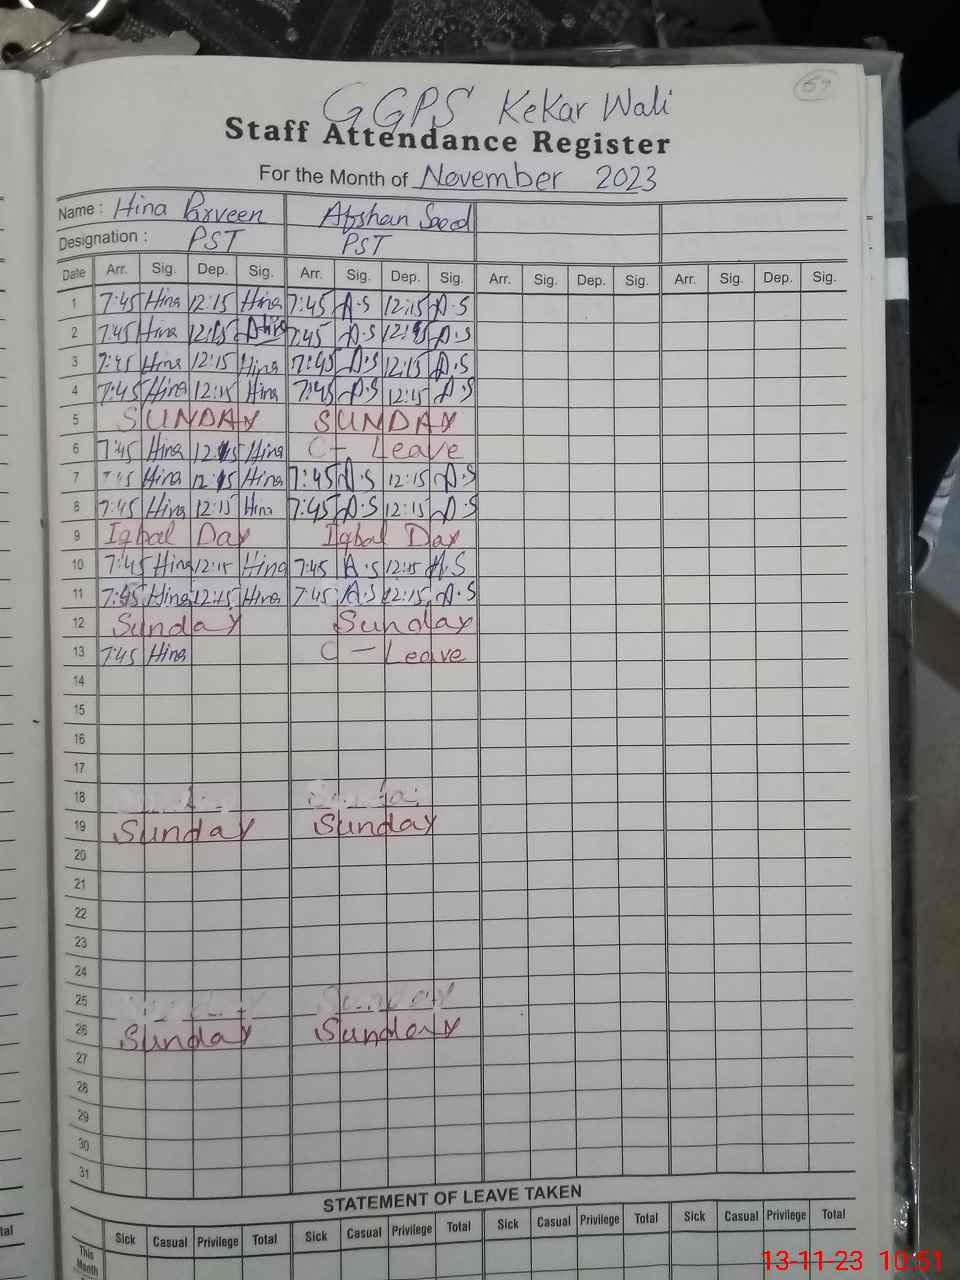 59
GGPS Kekar Wali
Staff Attendance Register
For the Month of November 2023
Name : Hina Parveen Afshan Saeed
Designation : PST PST
Date Arr. Sig. Dep. Sig. Arr. Sig. Dep. Sig. Arr. Sig. Dep. Sig. Arr. Sig. Dep. Sig.
1 7:45 Hina 12:15 Hina 7:45 A.S 12:15 A.S
2 7:45 Hina 12:15 Hina 7:45 A.S 12:15 A.S
3 7:45 Hina 12:15 Hina 7:45 A.S 12:15 A.S
4 7:45 Hina 12:15 Hina 7:45 A.S 12:15 A.S
5 SUNDAY SUNDAY
6 7:45 Hina 12:15 Hina C- Leave
7 7:45 Hina 12:15 Hina 7:45 A.S 12:15 A.S
8 7:45 Hina 12:15 Hina 7:45 A.S 12:15 A.S
9 Iqbal Day Iqbal Day
10 7:45 Hina 12:15 Hina 7:45 A.S 12:15 A.S
11 7:45 Hina 12:15 Hina 7:45 A.S 12:15 A.S
12 Sunday Sunday
13 7:45 Hina C - Leave
14
15
16
17
18
19 Sunday Sunday
20
21
22
23
24
25 Sunday Sunday
26 Sunday Sunday
27
28
29
30
31
STATEMENT OF LEAVE TAKEN
Sick Casual Privilege Total Sick Casual Privilege Total Sick Casual Privilege Total Sick Casual Privilege Total
This Month
13-11-23 10:51